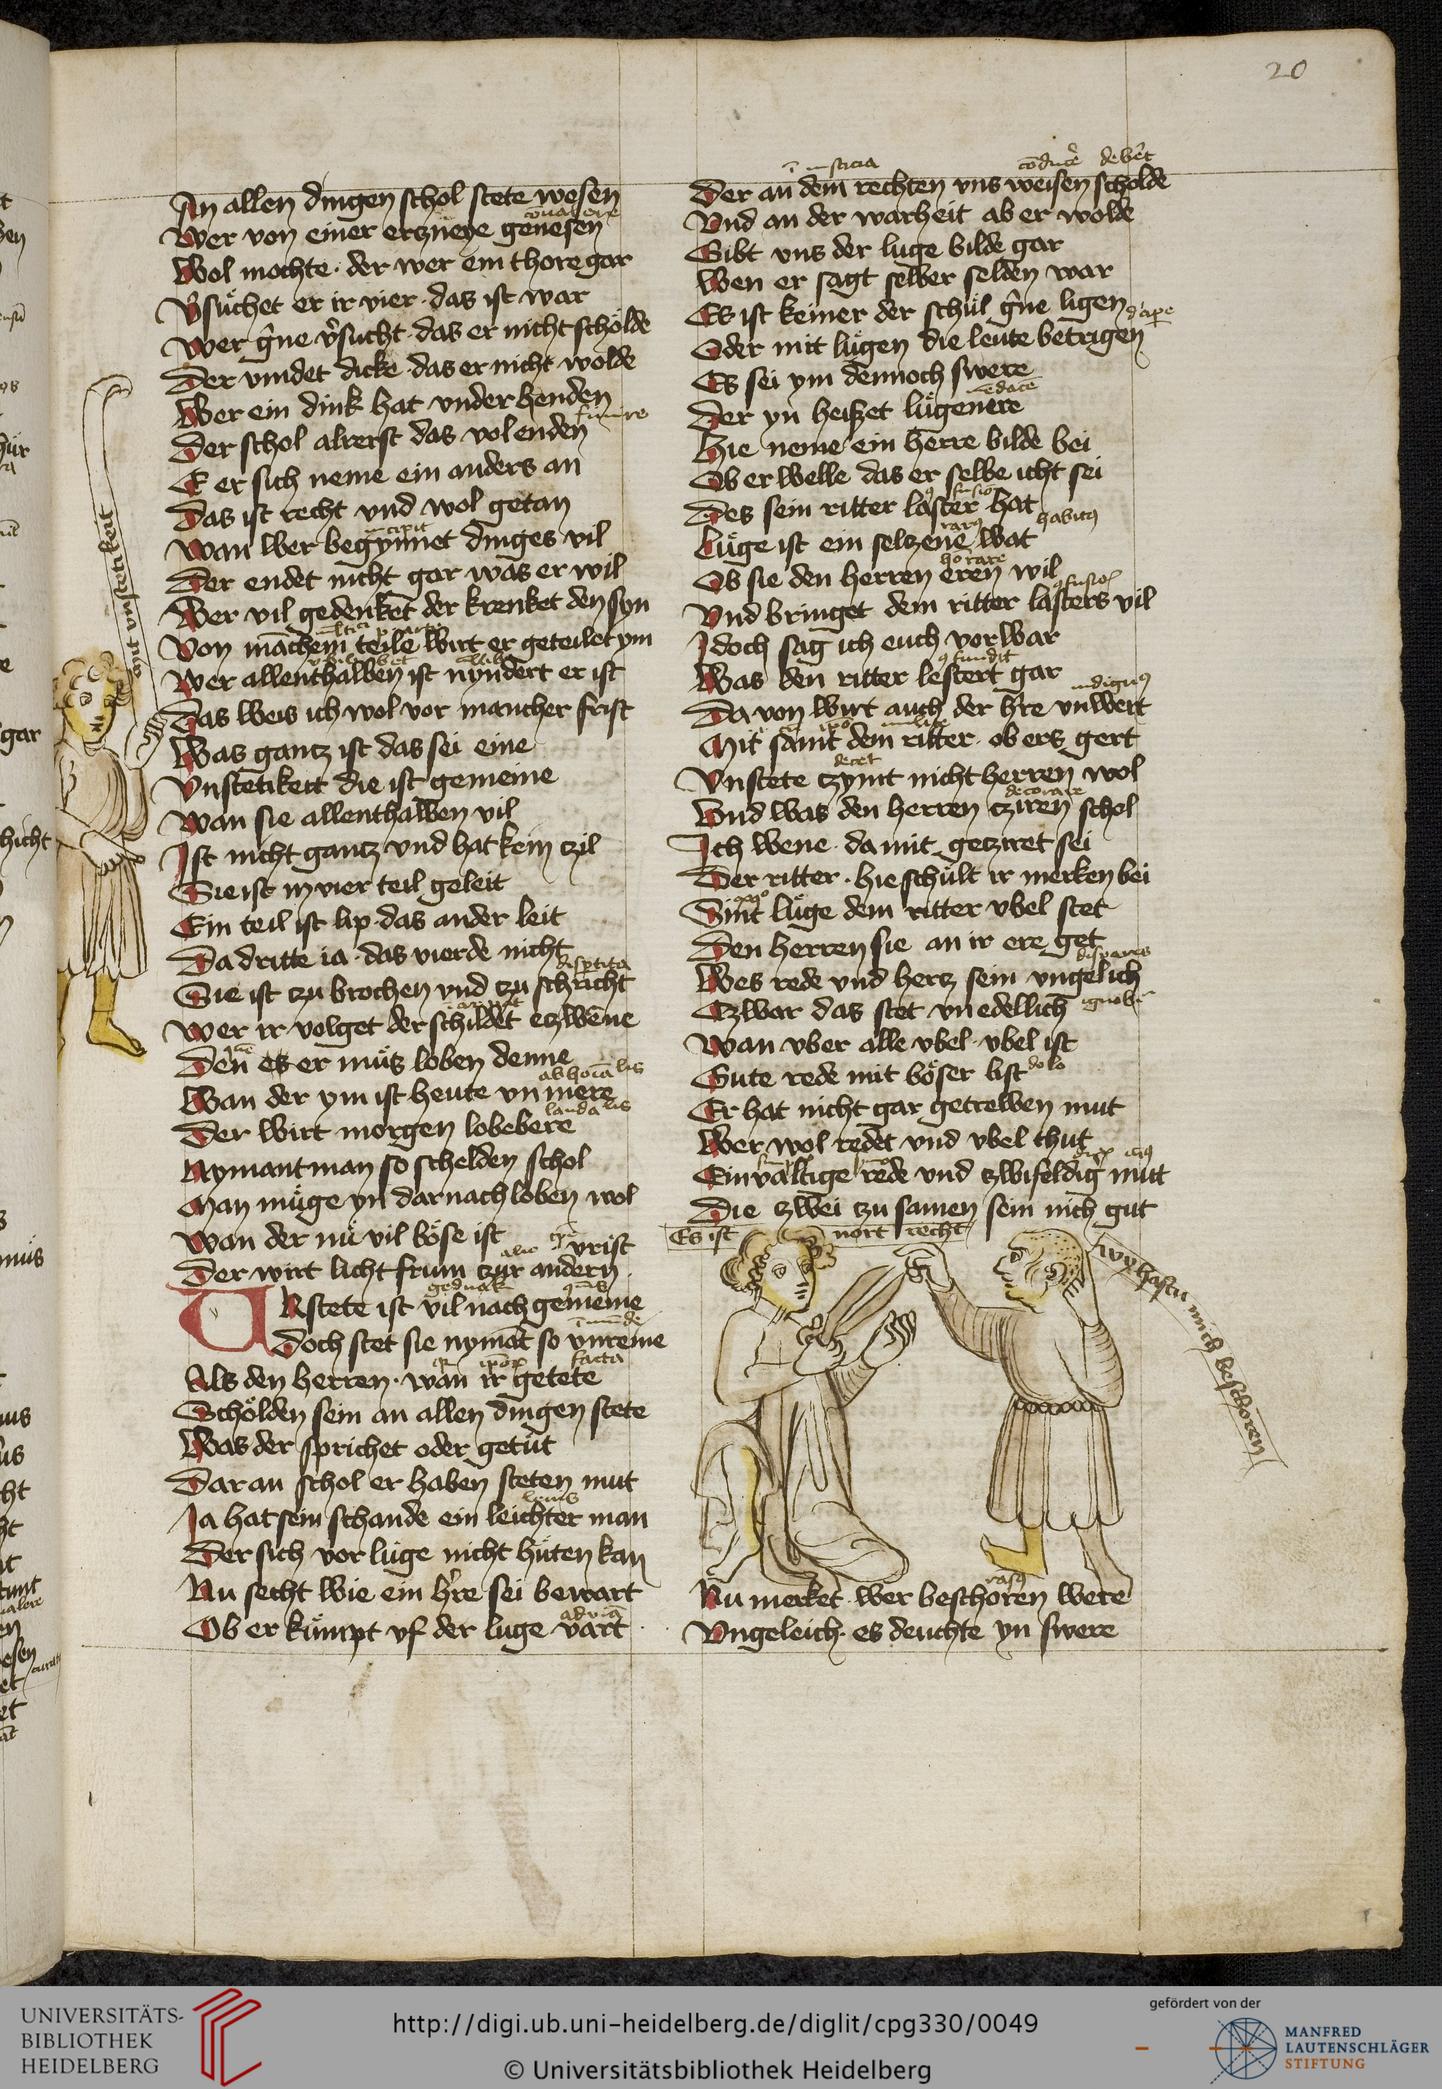 20
An allen dingen schol stete wesen
Wer von einer erzneye genesen
Wol mochte · der wer ein thore gar
Vˀsuͤchet er ir vier · das ist war
Wer gˀne vˀsucht · das er nicht schoͤlde
Der vindet dicke · das er nicht wolde
Wer ein dink hat vnder henden
Der schol alrerst das volenden
E er sich neme ein anders an
Das ist recht vnd wol getan
incipit
Wan wer begynnet dinges vil
Der endet nicht gar was er wil
Wer vil gedenket der krenket den syn
Von manchem teile wirt er geteilet ym
Wer allenthalben ist nyndert er ist
Das weis ich wol vor mancher frist
Was gantz ist das sei eine
Vnstetikeit die ist gemeine
Wan sie allenthalben vil
Ist nicht gantz vnd hat kein czil
Sie ist in vier teil geleit
Ein teil ist lip · das ander leit
Da dritte ia · das vierde nicht
Sie ist czu brochen vnd czu schricht
Wer ir volget der schildet eczwenne
Den es er muͤs loben denne
Wan der ym ist heute vnmere
Der wirt morgen lobebere
Nymant man so schelden schol
Man muͤge yn darnach loben wol
Wan der nuͤ vil boͤse ist
vrist
Der wirt licht frum czur andern
VNstete ist vil nach gemeine
Doch stet sie nymāt so vnreine
facta
Als den herren · wan ir getete
Schoͤlden sein an allen dingen stete
Was der sprichet oder getuͤt
Dar an schol er haben steten mut
leuis
Ja hat sein schande ein leichter man
Der sich vor luͤge nicht huͤten kan
Nu secht wie ein hˀre sei bewart
Ob er kuͤmpt vf der luge vart
vnstetikeit
Der an dem rechten vns weisen scholde
Vnd an der warheit ab er wolde
Gibt vns der luge bilde gar
Wen er sagt selber selden war
Es ist keiner der schuͤl gˀne ligen
Oder mit luͤgen die leute betrigen
Es sei ym dennoch swere
Der yn heiszet luͤgenere
Hie neme ein herre bilde bei
Ob er welle das er selbe icht sei
Des sein ritter laster hat
Luͤge ist ein selczene wat
Ob sie den herren eren wil
Vnd bringet dem ritter lasters vil
Idoch sag ich euch vorwar
Was den ritter lestert gar
Da von wirt auch der hˀre vnwert
Mit samt dem ritter · ob ers gert
decet
Vnstete czymt nicht herren wol
decorare
Vnd was den herren cziren schol
Ich wene · da mit gecziret sei
Der ritter · hie schuͤlt ir merken bei
Sint luͤge dem ritter vbel stet
Den herren sie an ir ere get
Wes rede vnd hercz sein vngelich
Czwar das stet vnedellich
Wan vber alle vbel · vbel ist
Gute rede mit boͤser list
dolo
Er hat nicht gar getrewen mut
Wer wol redet vnd vbel thut
Einvaltige rede vnd czwifeldig mut
Die czwei czu samen sein nich gut
Es ist nort recht
wy hastu mich beschoren
Nu merket · wer beschoren were
Vngeleich · es deuchte yn swere
UNIVERSITÄTS-
BIBLIOTHEK
HEIDELBERG
http://digi.ub.uni-heidelberg.de/diglit/cpg330/0049
© Universitätsbibliothek Heidelberg
gefördert von der
MANFRED
LAUTENSCHLÄGER
STIFTUNG